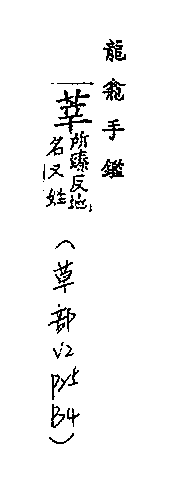 龍龕手鑑
莘
所臻反地
名又姓
(草部 V2 P25 B4)